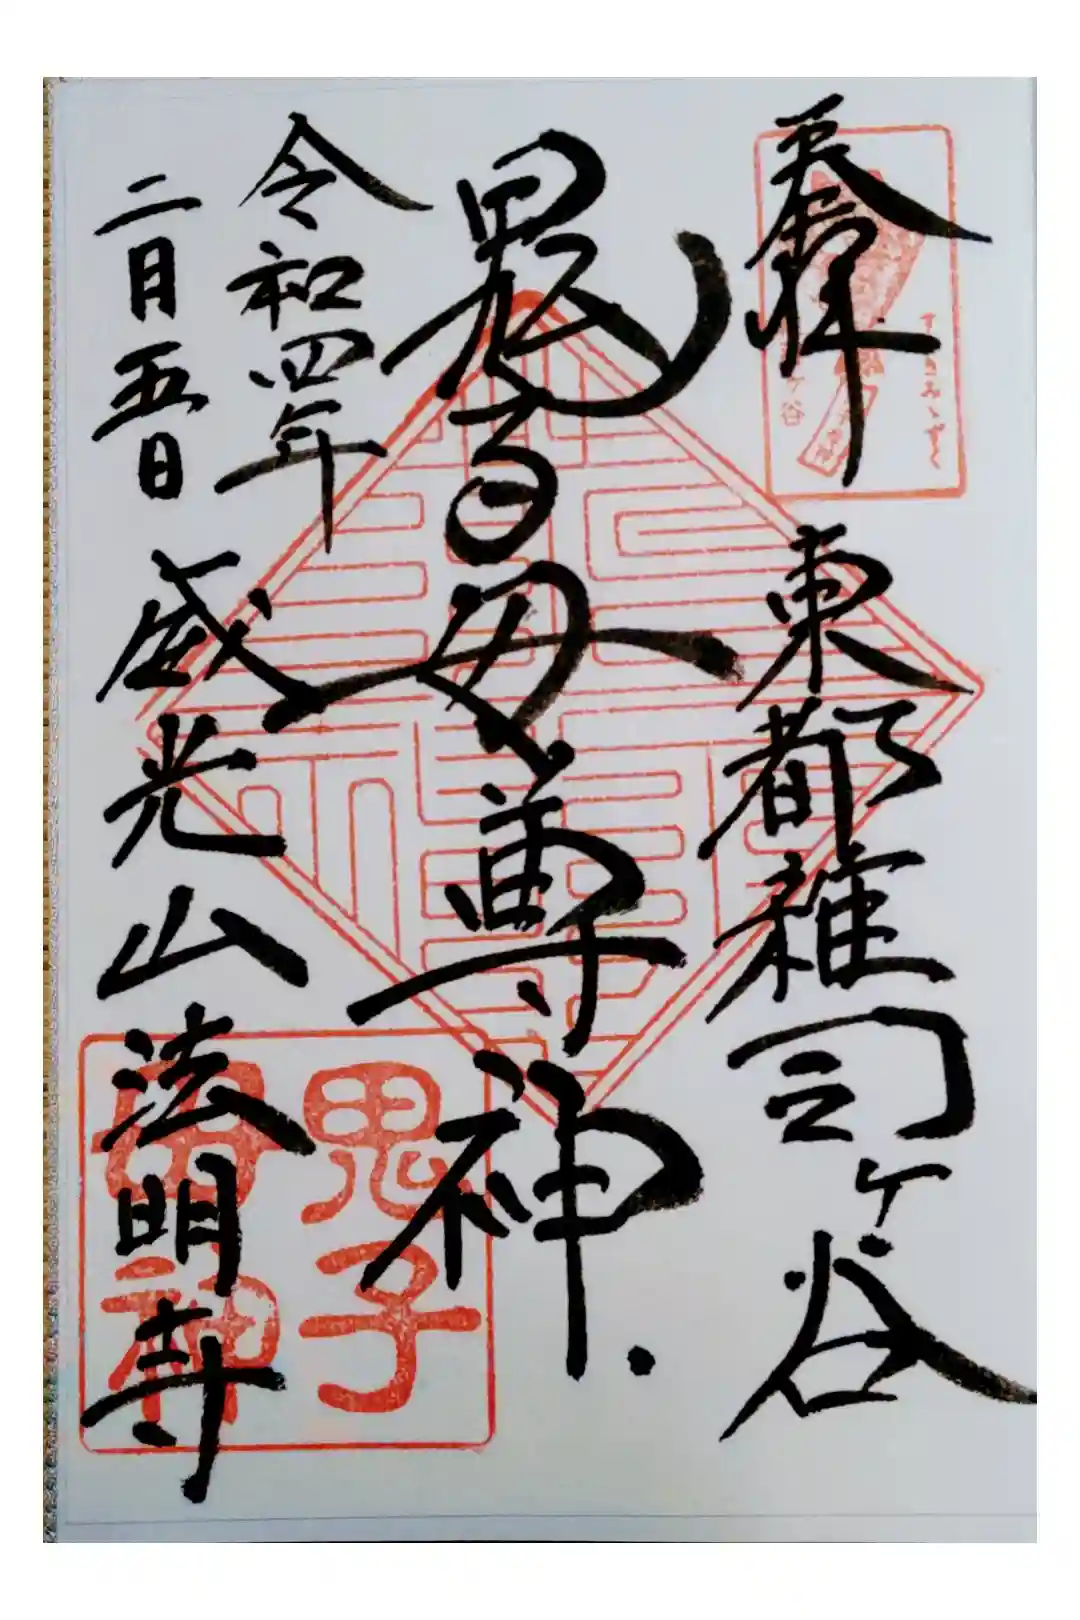 奉拝
東都雑司ヶ谷
鬼子母尊神
令和四年
二月五日
威光山法明寺
すゝきみゝずく
ヶ谷
鬼子
母神